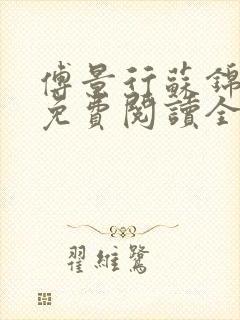 傅景行蘇錦
免費閱讀全
翟維鷺